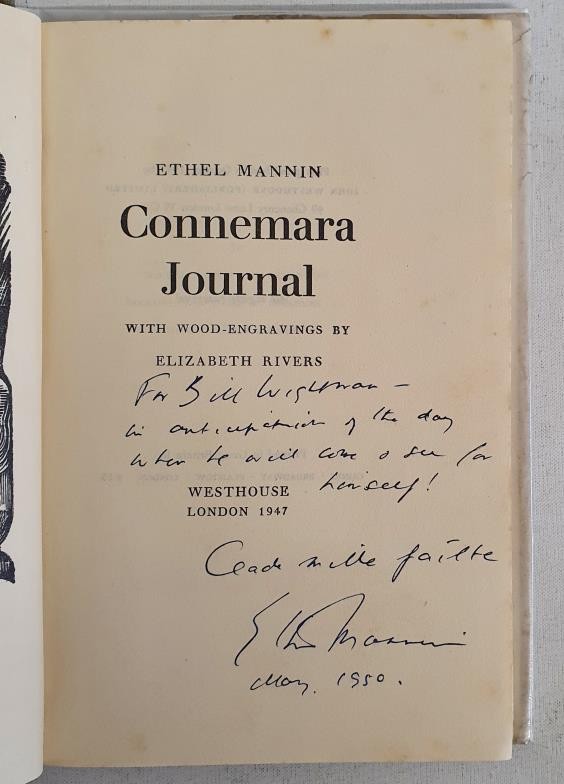 ETHEL MANNIN
Connemara
Journal
WITH WOOD-ENGRAVINGS BY
ELIZABETH RIVERS
For Bill Wightman –
in anticipation of the day
when he will come & see for
himself!
WESTHOUSE
LONDON 1947
Ceade mille failte
Ethel Mannin
May. 1950.